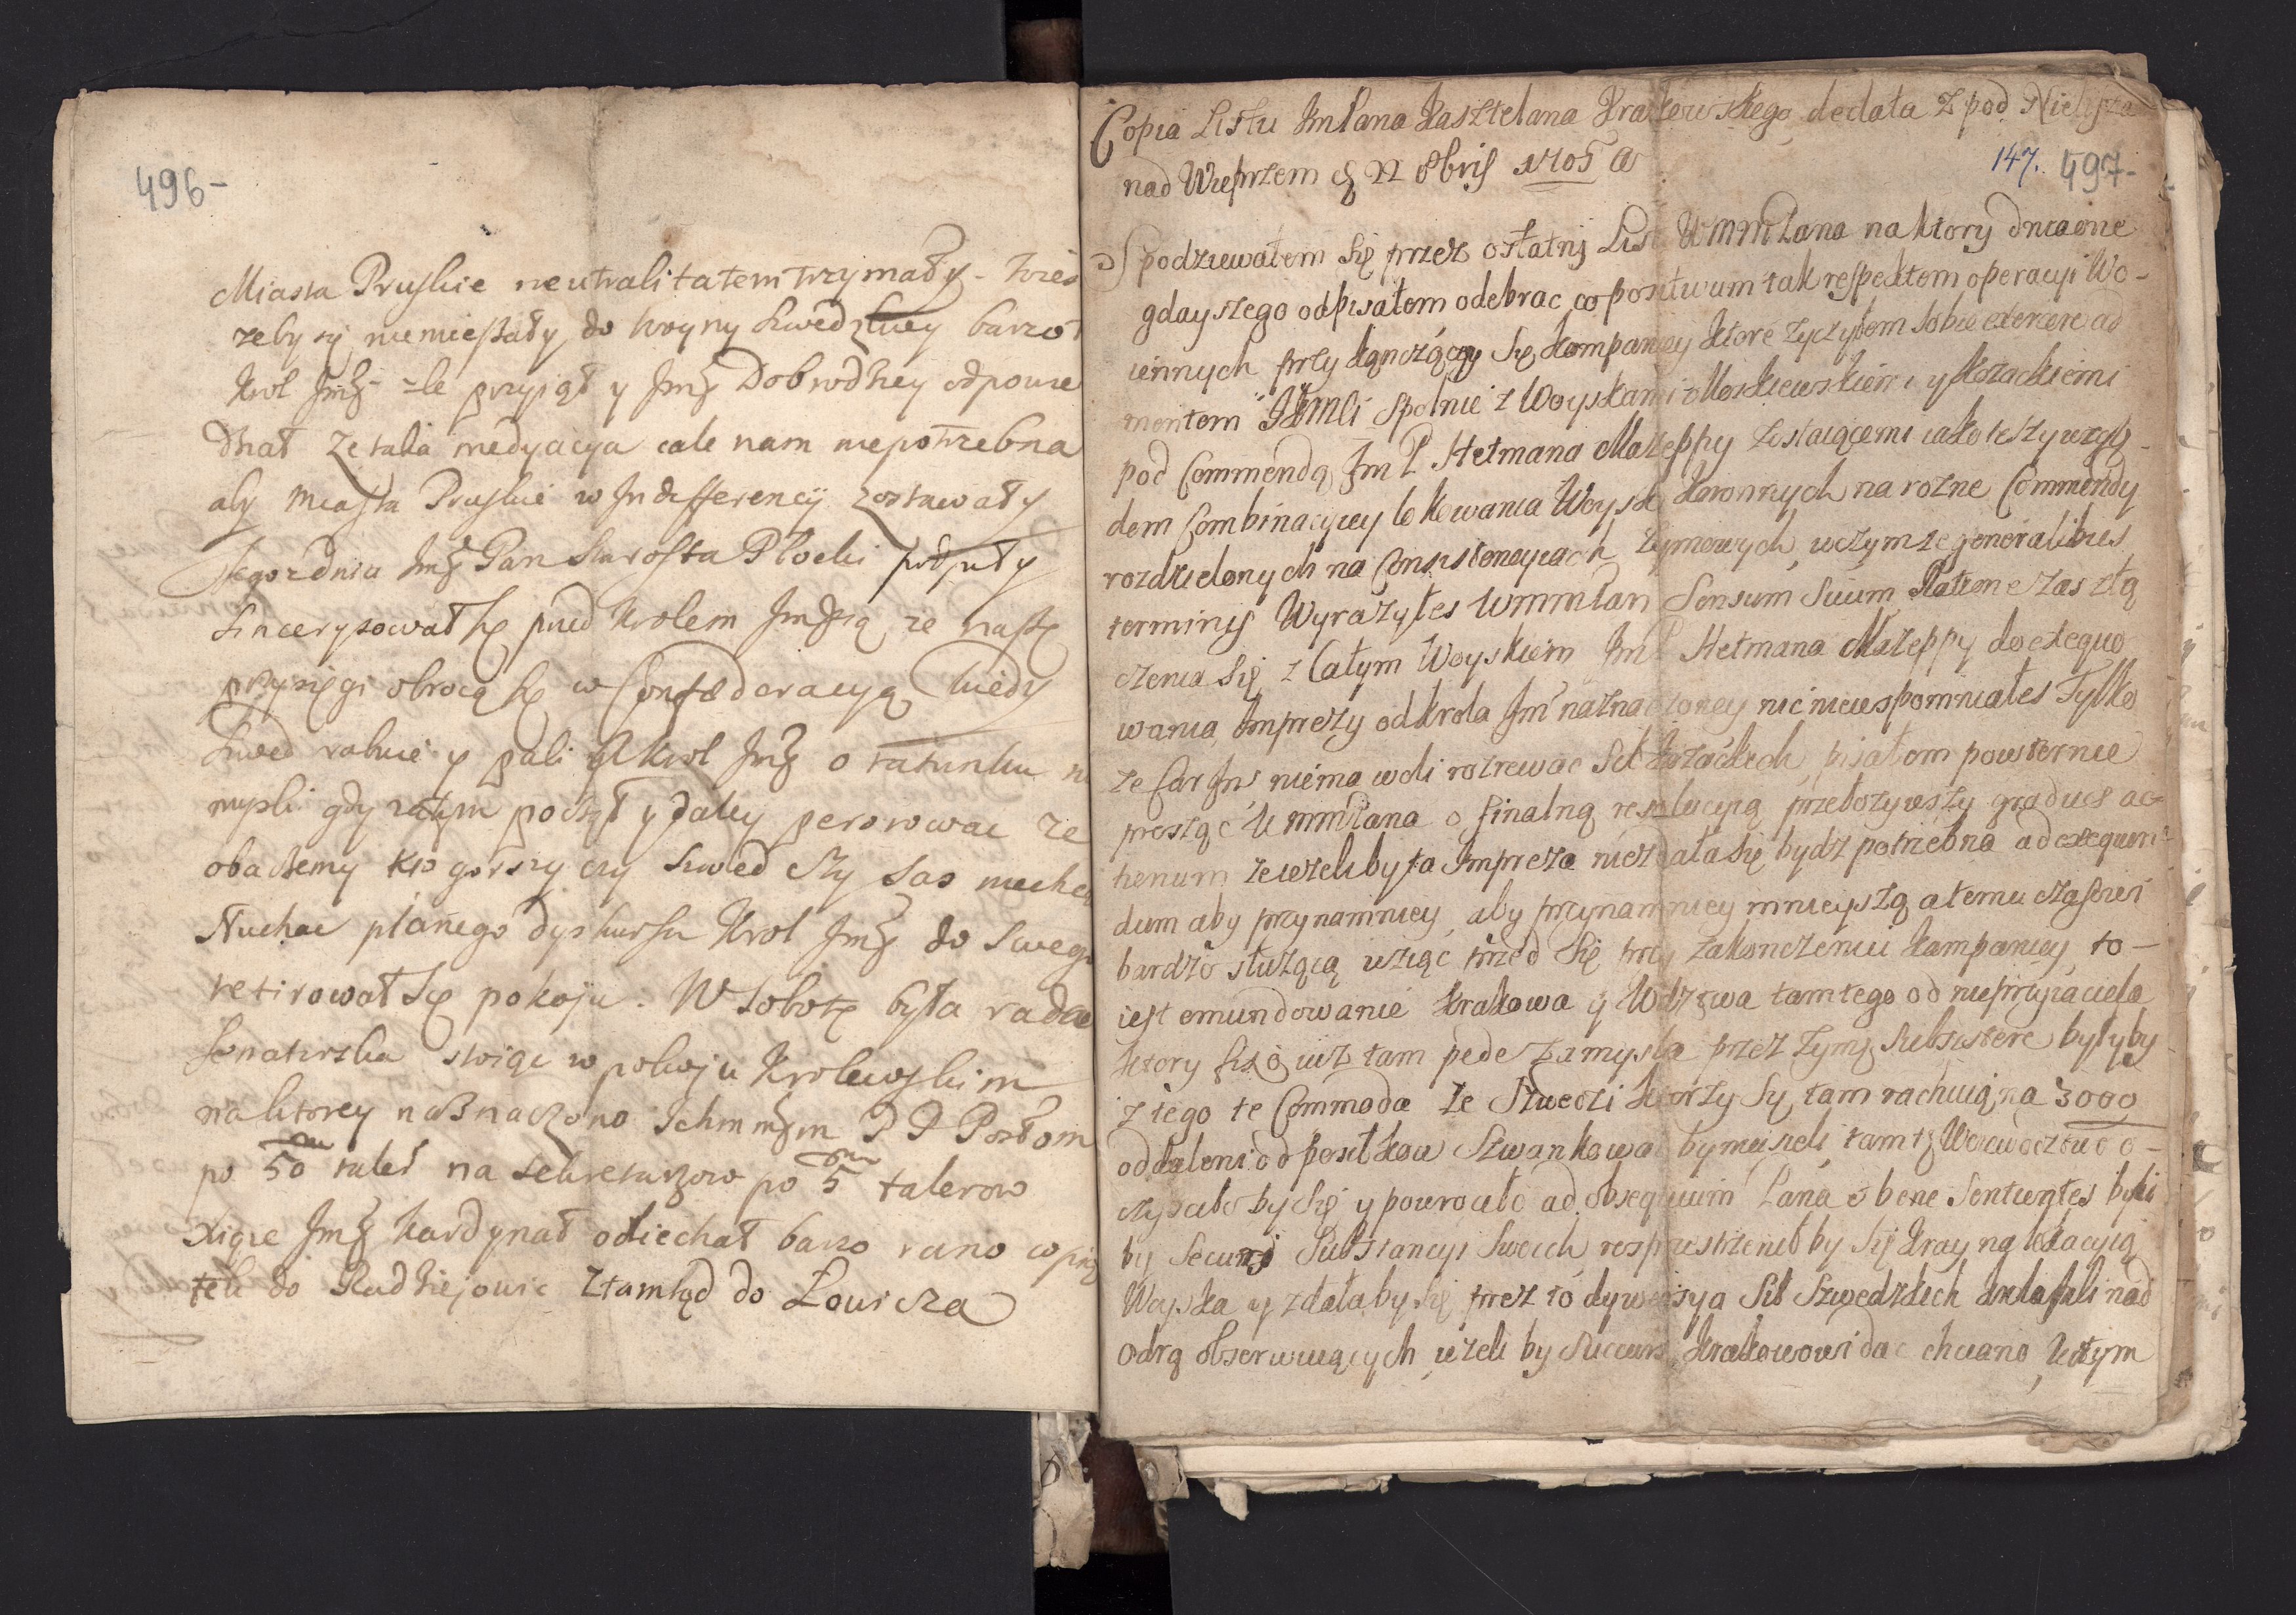 496-
Miasta Pruskie neutralitatem trzymały
zeby sy niemieszały do woyny Szwedzkiey barzo
Krol Jmę zle przyiął y Jmę Dobrodziey odpowie
dział ze taka medyacya cale nam niepotrzebna
aby miasta Pruskie w Indifferencij zostawały
Tegoz dnia Jmę Pan Starosta Płocki podpiły
sincerysował się przed Krolem Jmścią ze nasze
przysięgi obrocą się w Confæderacyą kiedy
Szwed rabuie y pali A Krol Jmę o ratunku
mysli gdy zatym począł y daley perorowac ze
obaczemy kto gorszy czy Szwed czy Sas
słuchac pianego dyskursu Krol Jmę do Swego
retirował się pokoju. W Sobotę była rada
Senatorska swięc w pokoju Krolewskim
na ktorey naznaczono Ichmmęm P P Posłom
po 50 taler na sekretarzow po 5 talerow
Xiąze Jmę Kardynał odiechał barzo rano w pią
tek do Radziejowic Ztamtąd do Łowicza
Copia Listu JmPana Kasztelana Krakowskiego de data z pod
nad Wieprzem 22 8bris 1705 A
147. 497-
Spodziewałem się przez ostatnj List WMMPana na ktory dnia one
gdayszego odpisałem odebrac co positivum tak respektem operacyi Wo-
iennych przy kączący się kompaniey ktore zyczyłem sobie exercere ad
mentem JKMCi spolnie z Woyskami Moskiewskiemi y Kozackiemi
pod Commendą Jm P Hetmana Mazeppy zostaiącemi iako tezy wzglę-
dem Combinacyiey lokowania Woysk Koronnych na rozne Commendy
rozdzielonych na Consistencyiach zymowych, w czym ze generalibus
terminis Wyraziłes WMMPan Sensum Suum Ratione zaszłą
czenia się z Całym Woyskiem Jm P Hetmana Mazeppy do exequo
wania Imprezy od Krola Jm naznaczoney nic niewspomniałes Tylko
ze Car Jm niema woli rozrewac Sił Kozackich, pisałem powtornie
prosząc WMMPana o finalną resolucyią przełozywszy gradus ac
henum ze iezeliby ta Impreza niezdała się bydz potrzebna ad exequen-
dum aby przynamniey, aby przynamniey mnieyszą a temu czasowi
bardzo słuzącą wziąc przed się przy zakonczeniu kampaniey, to-
iest emundowanie Krakowa y Wdztwa tamtego od nieprzyiaciela
ktory fixo iuz tam pede zamysla przez zymę subsistere byłyby
z tego te Commoda ze Szwedzi ktorzy Sy tam rachuią na 3000
oddaleni od posiłkow Szwankowac by musieli, tamte Woiewodztwo o-
czyscieło by się y powrociło ad obsequium Pana & bene Sentientes byli
by Securi Substancyi Swoich, rosprzestrzenił by się kray na lokacyią
Woyska y zdałaby się przez to dywersya Sił Szwedzkich
Odrą obserwuiących, iezeli by Succurs Krakowowi dac chciano, W tym